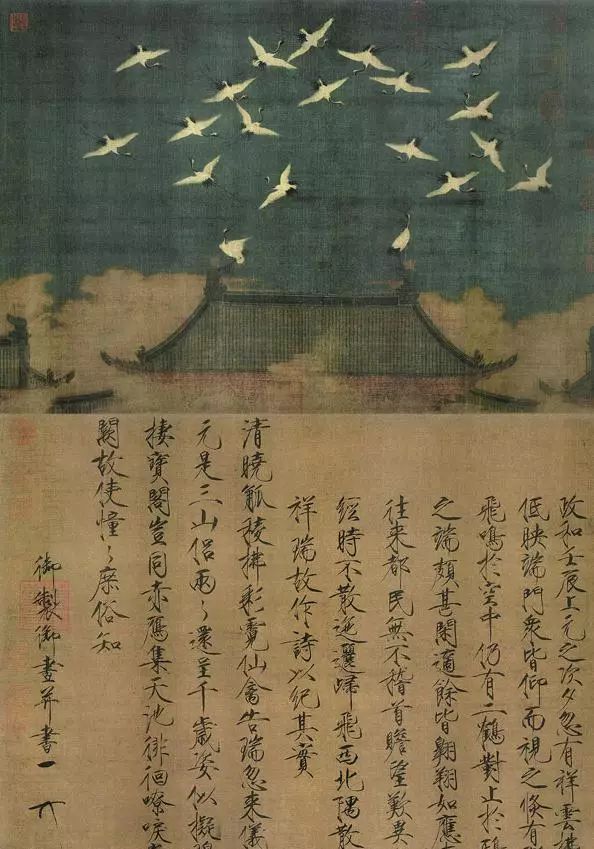 政和壬辰上元之次夕忽有祥雲拂
低映端門衆皆仰而視之倏有
飛鳴於空中仍有二鶴對止於鴟
之端頗甚閑適餘皆翱翔如應
往來都民無不稽首瞻望歎異
經時不散迤邐歸飛西北隅散
祥瑞故作詩以紀其實
清曉觚稜拂彩霓仙禽告瑞忽來儀
元是三山侶兩々還呈千歲姿似擬碧
棲寶閣豈同赤鴈集天池徘徊嘹唳
闕故使憧々庶俗知
御製御畫并書